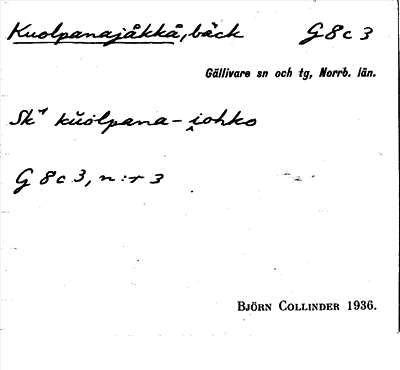 Kuolpanajåkkå, bäck G8c3
Gällivare sn och tg, Norrb. län.
Sk¹ kŭolpana-i̭ohko
G 8 c 3, n:r 3
BJÖRN COLLINDER 1936.